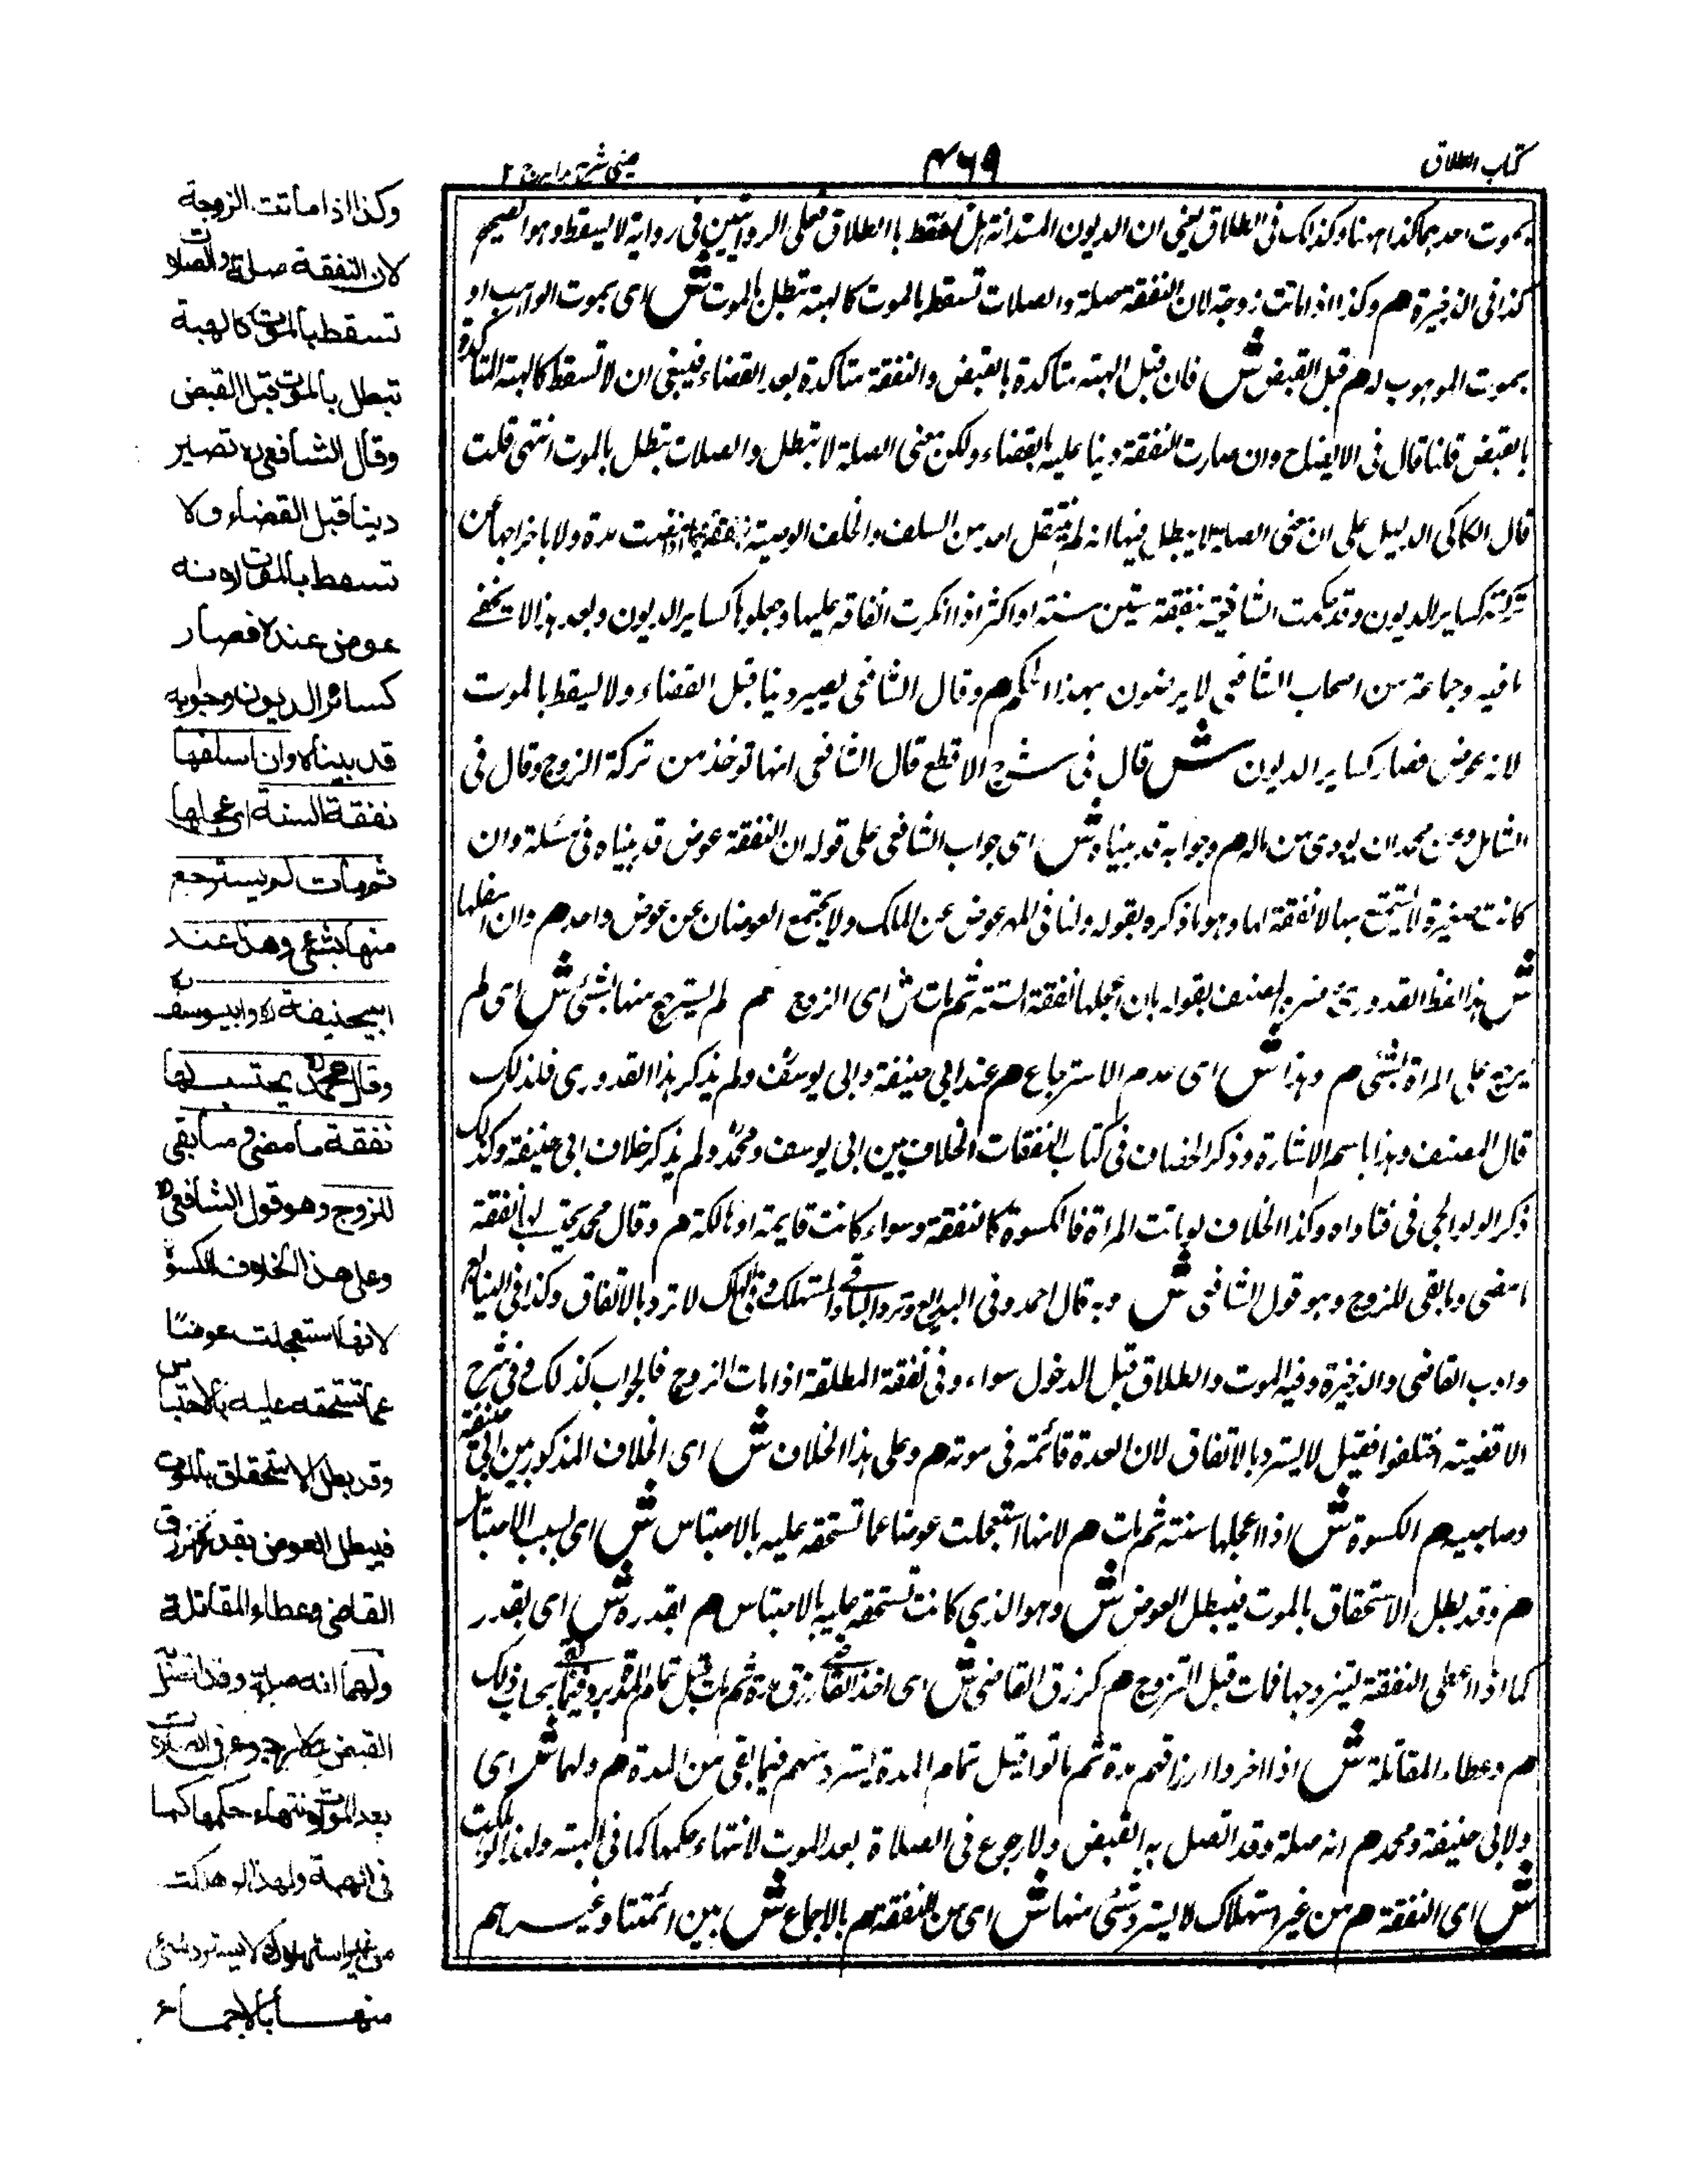 كتاب الطلاق
٤٦٩
عينى شرح هداية ج ٢
بموت احدهما كذا ههنا وكذلك فى الطلاق يعنى ان الديون المستدانة هل تسقط بالطلاق فعلى الروايتين فى رواية لا يسقط وهو الصحيح
كذا فى الذخيرة هم وكذا اذا ماتت زوجة لان النفقة صلة والصلات تسقط بالموت كالهبة تبطل بالموت ش اى بموت الواهب او
بموت الموهوب له هم قبل القبض ش فان قيل الهبة متاكدة بالقبض والنفقة متاكدة بعد القضاء فينبغى ان لا تسقط كالهبة المتاكدة
بالقبض قلنا قال فى الايضاح وان صارت النفقة دينا عليه بالقضاء ولكن معنى الصلة لا تبطل والصلات تبطل بالموت انتهى قلت
قال الكاكى الدليل على ان معنى الصلة لا يبطل فيها انه لم ينتقل احد من السلف والخلف الوصية بنفقة مدة ولا باخراجها من
تركته كسائر الديون وقد حكمت الشافعية بنفقة ستين سنة او اكثر اذا انكرت انفاقه عليها وجعلوها كساير الديون وبعد هذا لا يخفى
ما فيه وجماعة من اصحاب الشافعى لا يرضون بهذا الحكم هم وقال الشافعى يصير دينا قبل القضاء ولا يسقط بالموت
لانه عوض فصار كساير الديون ش قال فى شرح الاقطع قال الشافعى انها توخذ من تركة الزوج وقال فى
الشامل وعن محمد ان يودى من ماله هم وجوابه قد بيناه ش اى جواب الشافعى على قوله ان النفقة عوض قد بيناه فى مسئلة وان
كانت صغيرة لا يستمتع بها لا نفقة لها وهو ما ذكره بقوله ولنا فى المهر عوض عن الملك ولا يجتمع العوضان عن عوض واحد هم وان اسلفها
ش هذا لفظ القدورى فسره المصنف بقوله بان عجلها نفقة السنة ثم مات ش اى الزوج هم لم يسترجع منها بشئ ش اى لم
يرجع على المراة بشئ هم وهذا ش اى عدم الاسترجاع هم عند ابى حنيفة وابى يوسف ولم يذكر هذا القدورى فلذلك
قال المصنف وهذا باسم الاشارة وذكر الخصاف فى كتاب النفقات الخلاف بين ابى يوسف ومحمد ولم يذكر خلاف ابى حنيفة وكذلك
ذكر الولوالجى فى فتاواه وكذا الخلاف لو ماتت المراة فالكسوة كالنفقة وسواء كانت قايمة او هالكة هم وقال محمد يحتسب لها نفقة
ما مضى وما بقى للزوج وهو قول الشافعى ش وبه قال احمد وفى البدايع وترد الباقى والمستهلك لا ترد بالاتفاق وكذا فى الينابيع
وادب القاضى والذخيرة وفيه الموت والطلاق قبل الدخول سواء وفى نفقة المطلقة اذا مات الزوج فالجواب كذلك وفى شرح
الاقضية اختلفوا فقيل لا يسترد بالاتفاق لان العدة قائمة فى موته هم وعلى هذا الخلاف ش اى الخلاف المذكور بين ابى حنيفة
وصاحبيه هم الكسوة ش اذا عجلها سنة ثم مات هم لانها استعجلت عوضا عما تستحقه عليه بالاحتباس ش اى بسبب الاحتباس
هم وقد بطل الاستحقاق بالموت فيبطل العوض ش وهو الذى كانت تستحقه عليه بالاحتباس هم بقدره ش اى بقدر
كما اذا اعطى النفقة ليتزوجها فمات قبل التزوج هم كرزق القاضى ش اى اخذ القاضى رزق مدة ثم مات قبل تمام المدة يرد فيما بحساب ذلك
هم وعطاء المقاتلة ش اذا اخذوا ارزاقهم مدة ثم ماتوا قبل تمام المدة يسترد منهم فيما بقى من المدة هم ولهما ش اى
ولابى حنيفة ومحمد هم انه صلة وقد اتصل به القبض ولا رجوع فى الصلاة بعد الموت لانتهاء حكمها كما فى الهبة ولهذا لو هلكت
ش اى النفقة هم من غير استهلاك لا يسترد شئ منها ش اى من النفقة هم بالاجماع ش بين ائمتنا وغيرهم
وكذا اذا ماتت الزوجة
لان النفقة صلة والصلات
تسقط بالموت كالهبة
تبطل بالموت قبل القبض
وقال الشافعى ره تصير
دينا قبل القضاء ولا
تسقط بالموت لانه
عوض عنده فصار
كسائر الديون وجوابه
قد بيناه وان اسلفها
نفقة السنة اى عجلها
ثم مات لم يسترجع
منها بشئ وهذا عند
ابيحنيفة ره وابييوسف ره
وقال محمد ره يحتسب لها
نفقة ما مضى وما بقى
للزوج وهو قول الشافعى ره
وعلى هذا الخلاف الكسوة
لانها استعجلت عوضا
عما تستحقه عليه بالاحتباس
وقد بطل الاستحقاق بالموت
فيبطل العوض بقدره كرزق
القاضى وعطاء المقاتلة
ولهما انه صلة وقد اتصل به
القبض ولا رجوع فى الصلات
بعد الموت لانتهاء حكمها كما
فى الهبة ولهذا لو هلكت
من غير استهلاك لا يسترد شئ
منها بالاجماع